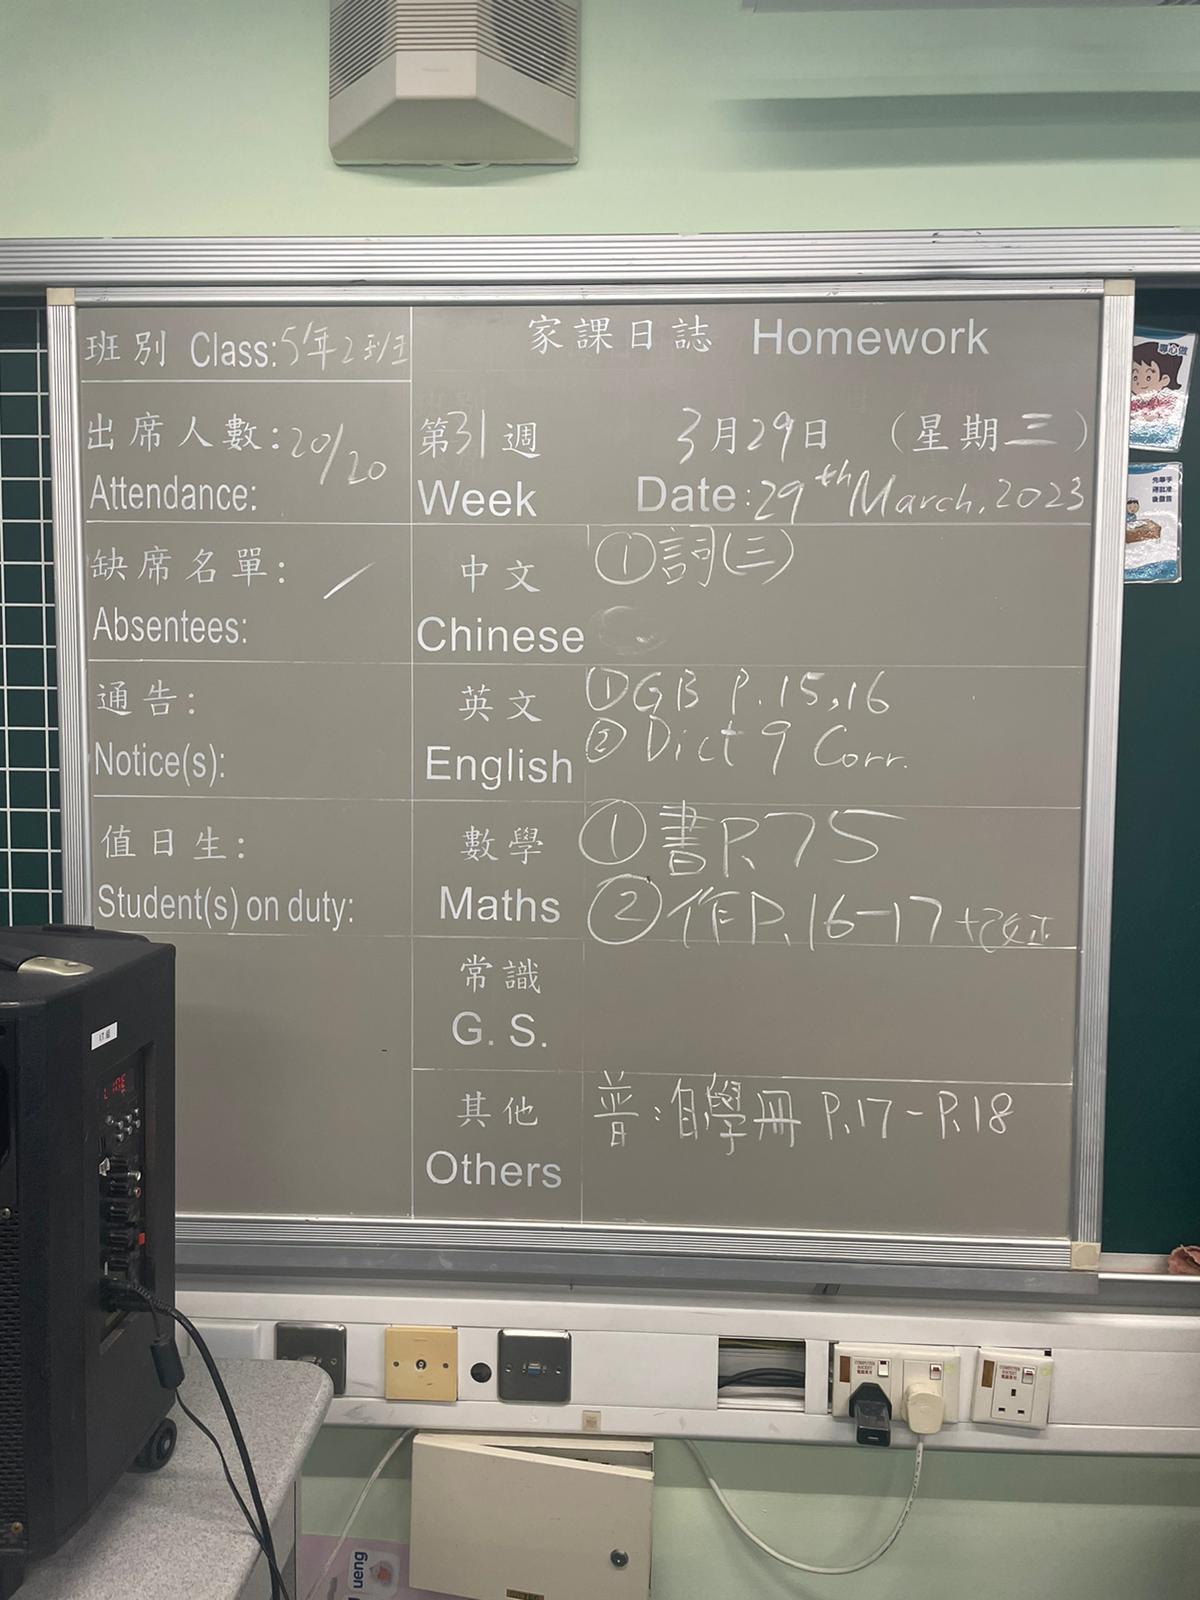 班別 Class: 5年2班
家課日誌 Homework
出席人數: 20/20
Attendance:
第31週 3月29日 (星期三)
Week Date: 29th March, 2023
缺席名單: /
Absentees:
中文 ①詞(三)
Chinese
通告:
Notice(s):
英文 ①GB P.15,16
English ② Dict 9 Corr.
值日生:
Student(s) on duty:
數學 ①書P.75
Maths ②作P.16-17+改正
常識
G. S.
其他 普:自學冊 P.17-P.18
Others
專心做
先舉手
得批准
後發言
COMPUTER
SOCKET
COMPUTER
SOCKET
ueng